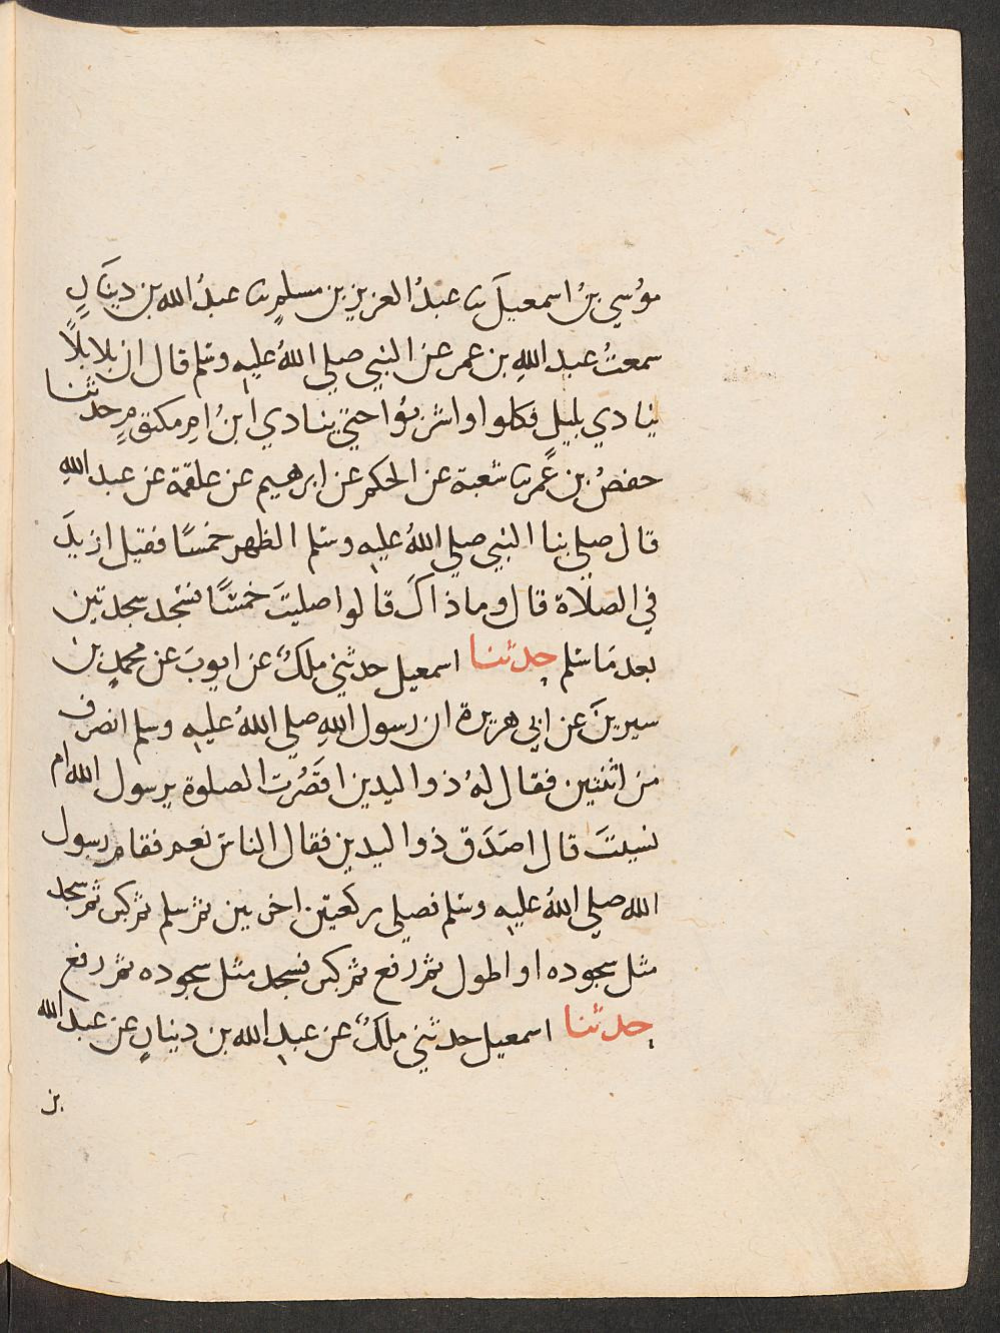 موُسي بنُ اسمعيلَ ثنا عبدُ العزيزِ بن مسلمٍ ثنا عبدُ الله بن دينَارٍ
سمعتُ عبد اللهِ بن عمر عن النبي صلي اللهُ عليه وسلم قال ان بلا بلالًا
ينادي بليلٍ فكلوا واشربوُا حتي ينادي ابنُ امِ مكتومٍ حدثنا
حفصُ بن عُمر ثنا شعبة عن الحكم عن ابرهيم عن علقمة عن عبد اللهِ
قال صلي بنا النبي صلي اللهُ عليه وسلم الظهر خمسًا فقيل ازيدَ
في الصلاة قال وما ذاكَ قالوا صليتَ خمسًا فسجد سجدتين
بعد مَا سلم حدثنا اسمعيل حدثني ملكٌ عن ايوبَ عن محمدٍ بن
سيرينَ عن ابي هريرة ان رسول اللهِ صلي اللهُ عليه وسلم انصرف
من اثنتين فقال لهُ ذوا ليدين اقَصُرت الصلوة يرسول الله ام
نسيتَ قال اصَدَق ذوا ليدين فقال الناسُ نعم فقام رسول
الله صلي اللهُ عليه وسلم فصلي ركعتين اخريين ثم سلم ثم كبر ثم سجد
مثل سجوده او اطول ثم رفع ثم كبر فسجد مثل سجوده ثم رفع
حدثنا اسمعيل حدثني ملكٌ عن عبدِ الله بن دينارٍ عن عبد الله
بن